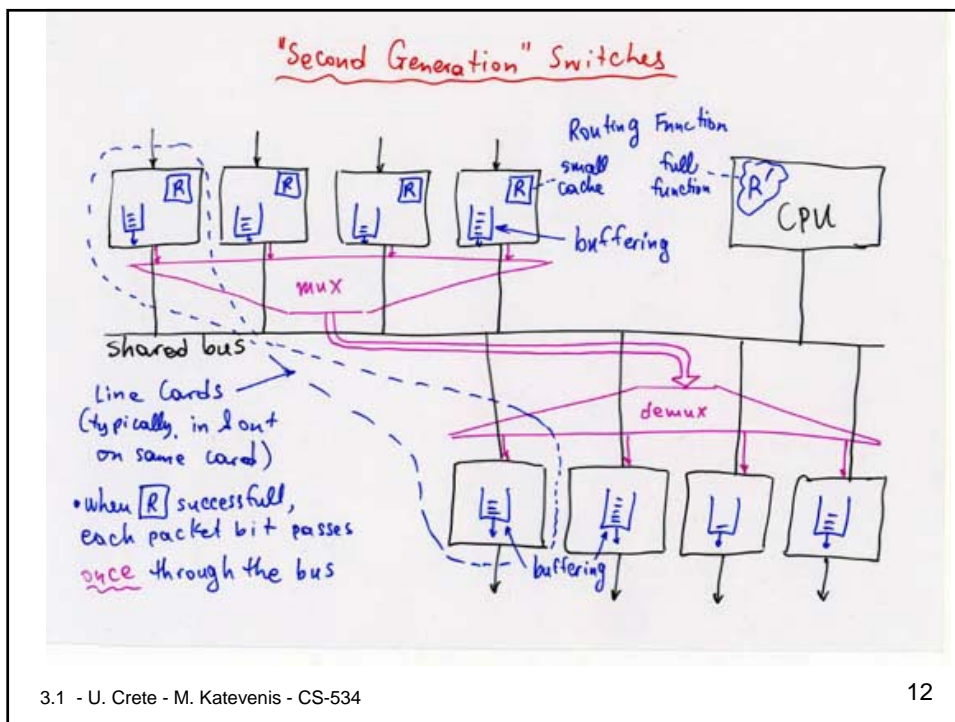 "Second Generation" Switches
Routing Function
small
cache
full
function
R
R
R
R
R'
CPU
buffering
mux
shared bus
Line Cards
(typically, in & out
on same card)
demux
• when R successfull,
each packet bit passes
once through the bus
buffering
3.1 - U. Crete - M. Katevenis - CS-534
12